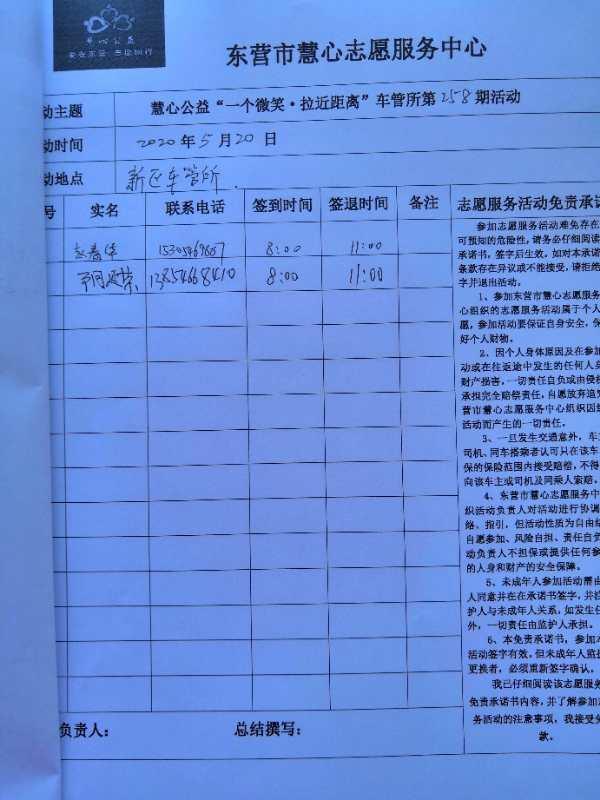 慧心公益
爱在东营 手牵手同行
东营市慧心志愿服务中心
动主题 慧心公益“一个微笑·拉近距离”车管所第258期活动
动时间 2020年5月20日
动地点 新区车管所.
号 实名 联系电话 签到时间 签退时间 备注 志愿服务活动免责承诺
8:00 11:00
13854668410 8:00 11:00
参加志愿服务活动难免存在
可预知的危险性,请务必仔细阅读
承诺书,签字后生效,如对本承诺
条款存在异议或不能接受,请拒绝
字并退出活动。
1、参加东营市慧心志愿服务
心组织的志愿服务活动属于个人
愿,参加活动要保证自身安全,保
好个人财物。
2、因个人身体原因及在参加
动或在往返途中发生的任何人身
财产损害,一切责任自负或由侵权
承担完全赔偿责任,自愿放弃追究
营市慧心志愿服务中心组织因组
活动而产生的一切责任。
3、一旦发生交通意外,车
司机、同车搭乘者认可只在该车
保的保险范围内接受赔偿,不得
向该车主或司机及同乘人索赔,
4、东营市慧心志愿服务中
织活动负责人对活动进行协调
络、指引,但活动性质为自由结
自愿参加、风险自担、责任自负
动负责人不担保或提供任何参
的人身和财产的安全保障。
5、未成年人参加活动需由
人同意并在在承诺书签字,并注
护人与未成年人关系,如发生任
外,一切责任由监护人承担。
6、本免责承诺书,参加本
活动签字有效,但未成年人监护
更换者,必须重新签字确认。
我已仔细阅读该志愿服务
免责承诺书内容,并了解参加志
务活动的注意事项,我接受免
款。
负责人: 总结撰写: